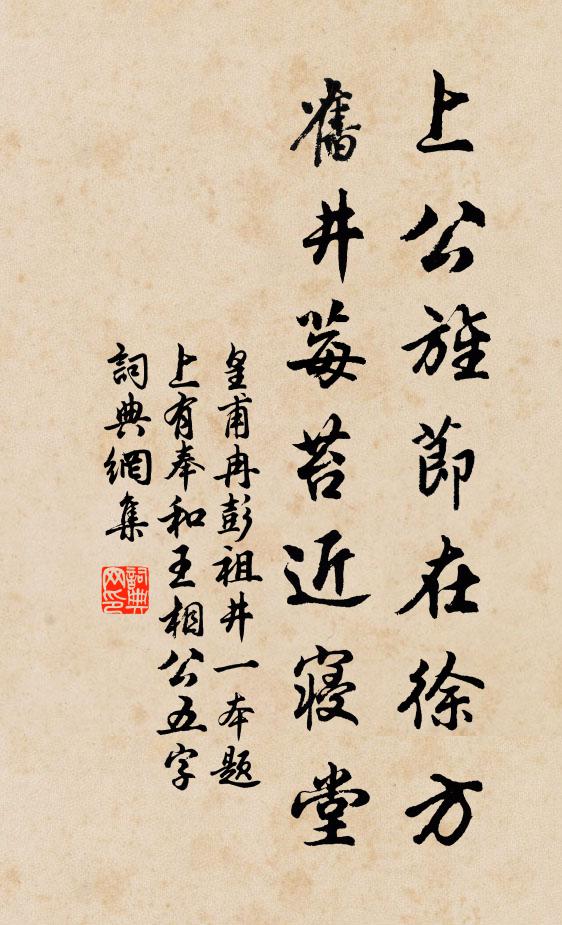 上公旌節在徐方
舊井莓苔近寢堂
皇甫冉彭祖井一本題
上有奉和王相公五字
詞典網集
詞典
网印